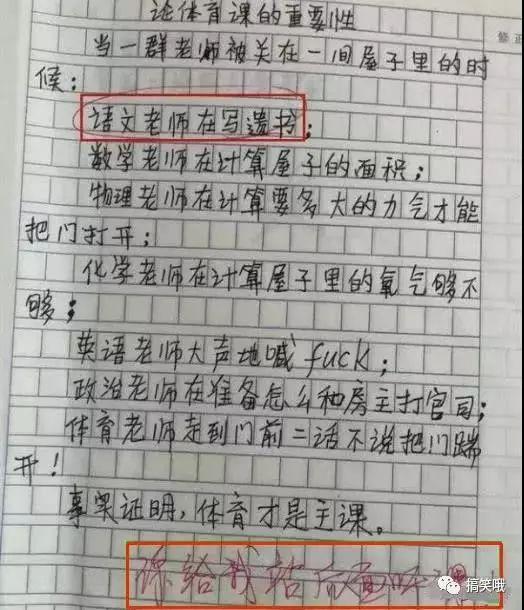 论体育课的重要性
当一群老师被关在一间屋子里的时
候：
语文老师在写遗书；
数学老师在计算屋子的面积；
物理老师在计算要多大的力气才能
把门打开；
化学老师在计算屋子里的氧气够不
够；
英语老师大声地喊fuck；
政治老师在准备怎么和房主打官司；
体育老师走到门前二话不说把门踹
开！
事实证明，体育才是主课。
你给我站后面听课！
搞笑哦